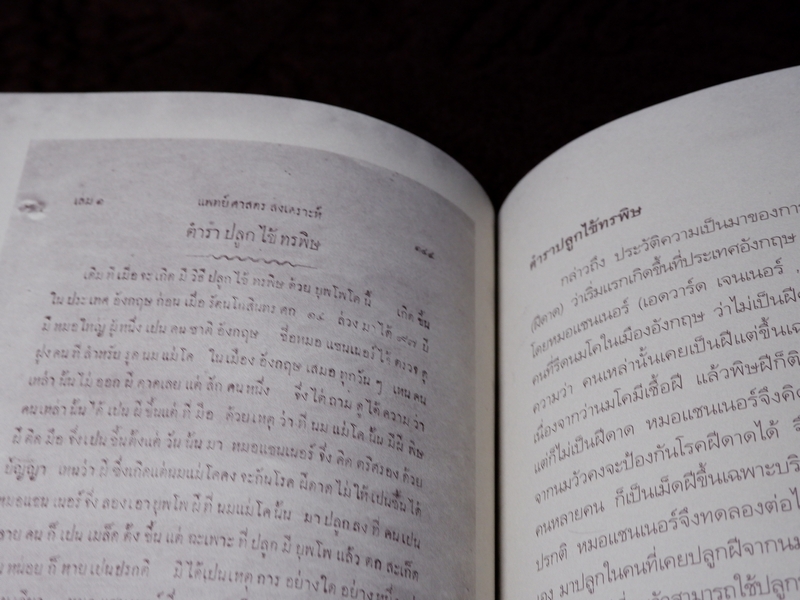 เล่ม ๑
แพทย์ศาสตร สงเคราะห์
ตำรา ปลูก ไข้ ทรพิษ
๑๔๔
เดิม ที่ เมื่อ จะ เกิด มี วิธี ปลูก ไข้ ทรพิษ ด้วย บุพโพโค นี้ เกิด ขึ้น
ใน ประเทศ อังกฤษ ก่อน เมื่อ รัตนโกสินทร ศก ๑๕ ล่วง มา ได้ ๙๗ ปี
มี หมอ ใหญ่ ผู้ หนึ่ง เปน คน ชาติ อังกฤษ ชื่อหมอ แชนเนอร์ ได้ ตรวจ ดู
ฝูง คน ที่ สำหรับ รูด นม แม่ โค ใน เมือง อังกฤษ เสมอ ทุก วัน ๆ เหน คน
เหล่า นั้น ไม่ ออก ฝี ดาด เลย แต่ สัก คน หนึ่ง ซึ่ง ได้ ถาม ดู ได้ ความ ว่า
คน เหล่า นั้น ได้ เปน ฝี ขึ้น แต่ ที่ มือ ด้วย เหตุ ว่า ที่ นม แม่ โค นั้น มี พิษ
ฝี ติด มือ จึ่ง เปน ขึ้น ตั้งแต่ วัน นั้น มา หมอแชนเนอร์ จึ่ง คิด ตริตรอง ด้วย
ปัญญา เหนว่า ฝี ซึ่งเกิดแต่นมแม่โคคง จะกันโรค ฝีดาด ไม่ ให้ เปนขึ้น ได้
หมอแชนเนอร์ จึ่ง ลอง เอา บุพโพ ฝี ที่ นมแม่โค นั้น มา ปลูก ลง ที่ คน เปน
หลาย คน ก็ เปน เมล็ด ตั้ง ขึ้น แต่ ฉะเพาะ ที่ ปลูก มี บุพโพ แล้ว ตก สะเก็ด
หน่อย ก็ หาย เปนปรกติ มิ ได้เปนเหตุ การ อย่างใด อย่างหนึ่ง
ตำราปลูกไข้ทรพิษ
กล่าวถึง ประวัติความเป็นมาของการ
(ฝีดาด) ว่าเริ่มแรกเกิดขึ้นที่ประเทศอังกฤษ
โดยหมอแชนเนอร์ (เอดวาร์ด เจนเนอร์
คนที่รีดนมโคในเมืองอังกฤษ ว่าไม่เป็นฝี
ความว่า คนเหล่านั้นเคยเป็นฝีแต่ขึ้นเฉ
เนื่องจากว่านมโคมีเชื้อฝี แล้วพิษฝีก็ติ
แต่ก็ไม่เป็นฝีดาด หมอแชนเนอร์จึงคิด
จากนมวัวคงจะป้องกันโรคฝีดาดได้
คนหลายคน ก็เป็นเม็ดฝีขึ้นเฉพาะบริ
ปรกติ หมอแชนเนอร์จึงทดลองต่อไ
เอง มาปลูกในคนที่เคยปลูกฝีจากนม
สามารถใช้ปลูก